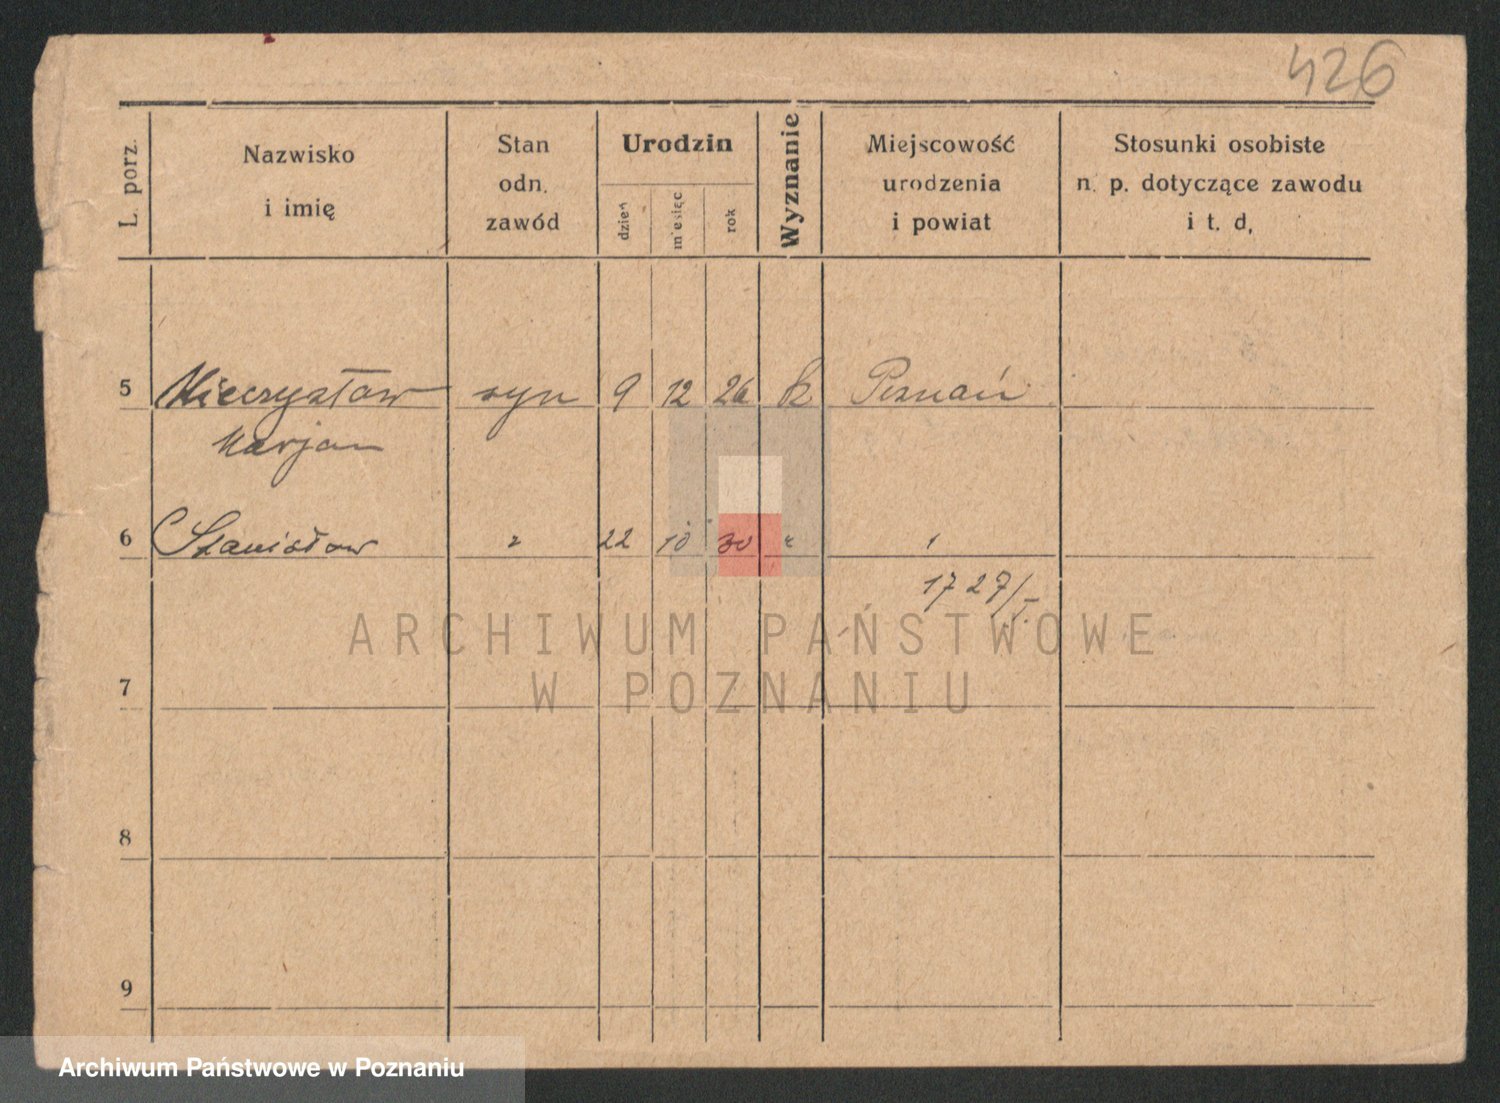 426
L. porz.
Nazwisko
i imię
Stan
odn.
zawód
Urodzin
dzień
miesiąc
rok
Wyznanie
Miejscowość
urodzenia
i powiat
Stosunki osobiste
n. p. dotyczące zawodu
i t. d.
5 Mieczysław syn 9 12 26 k Poznań
Marjan
6 Stanisław " 22 10 30 "
1727/
ARCHIWUM PAŃSTWOWE
W POZNANIU
7
8
9
Archiwum Państwowe w Poznaniu